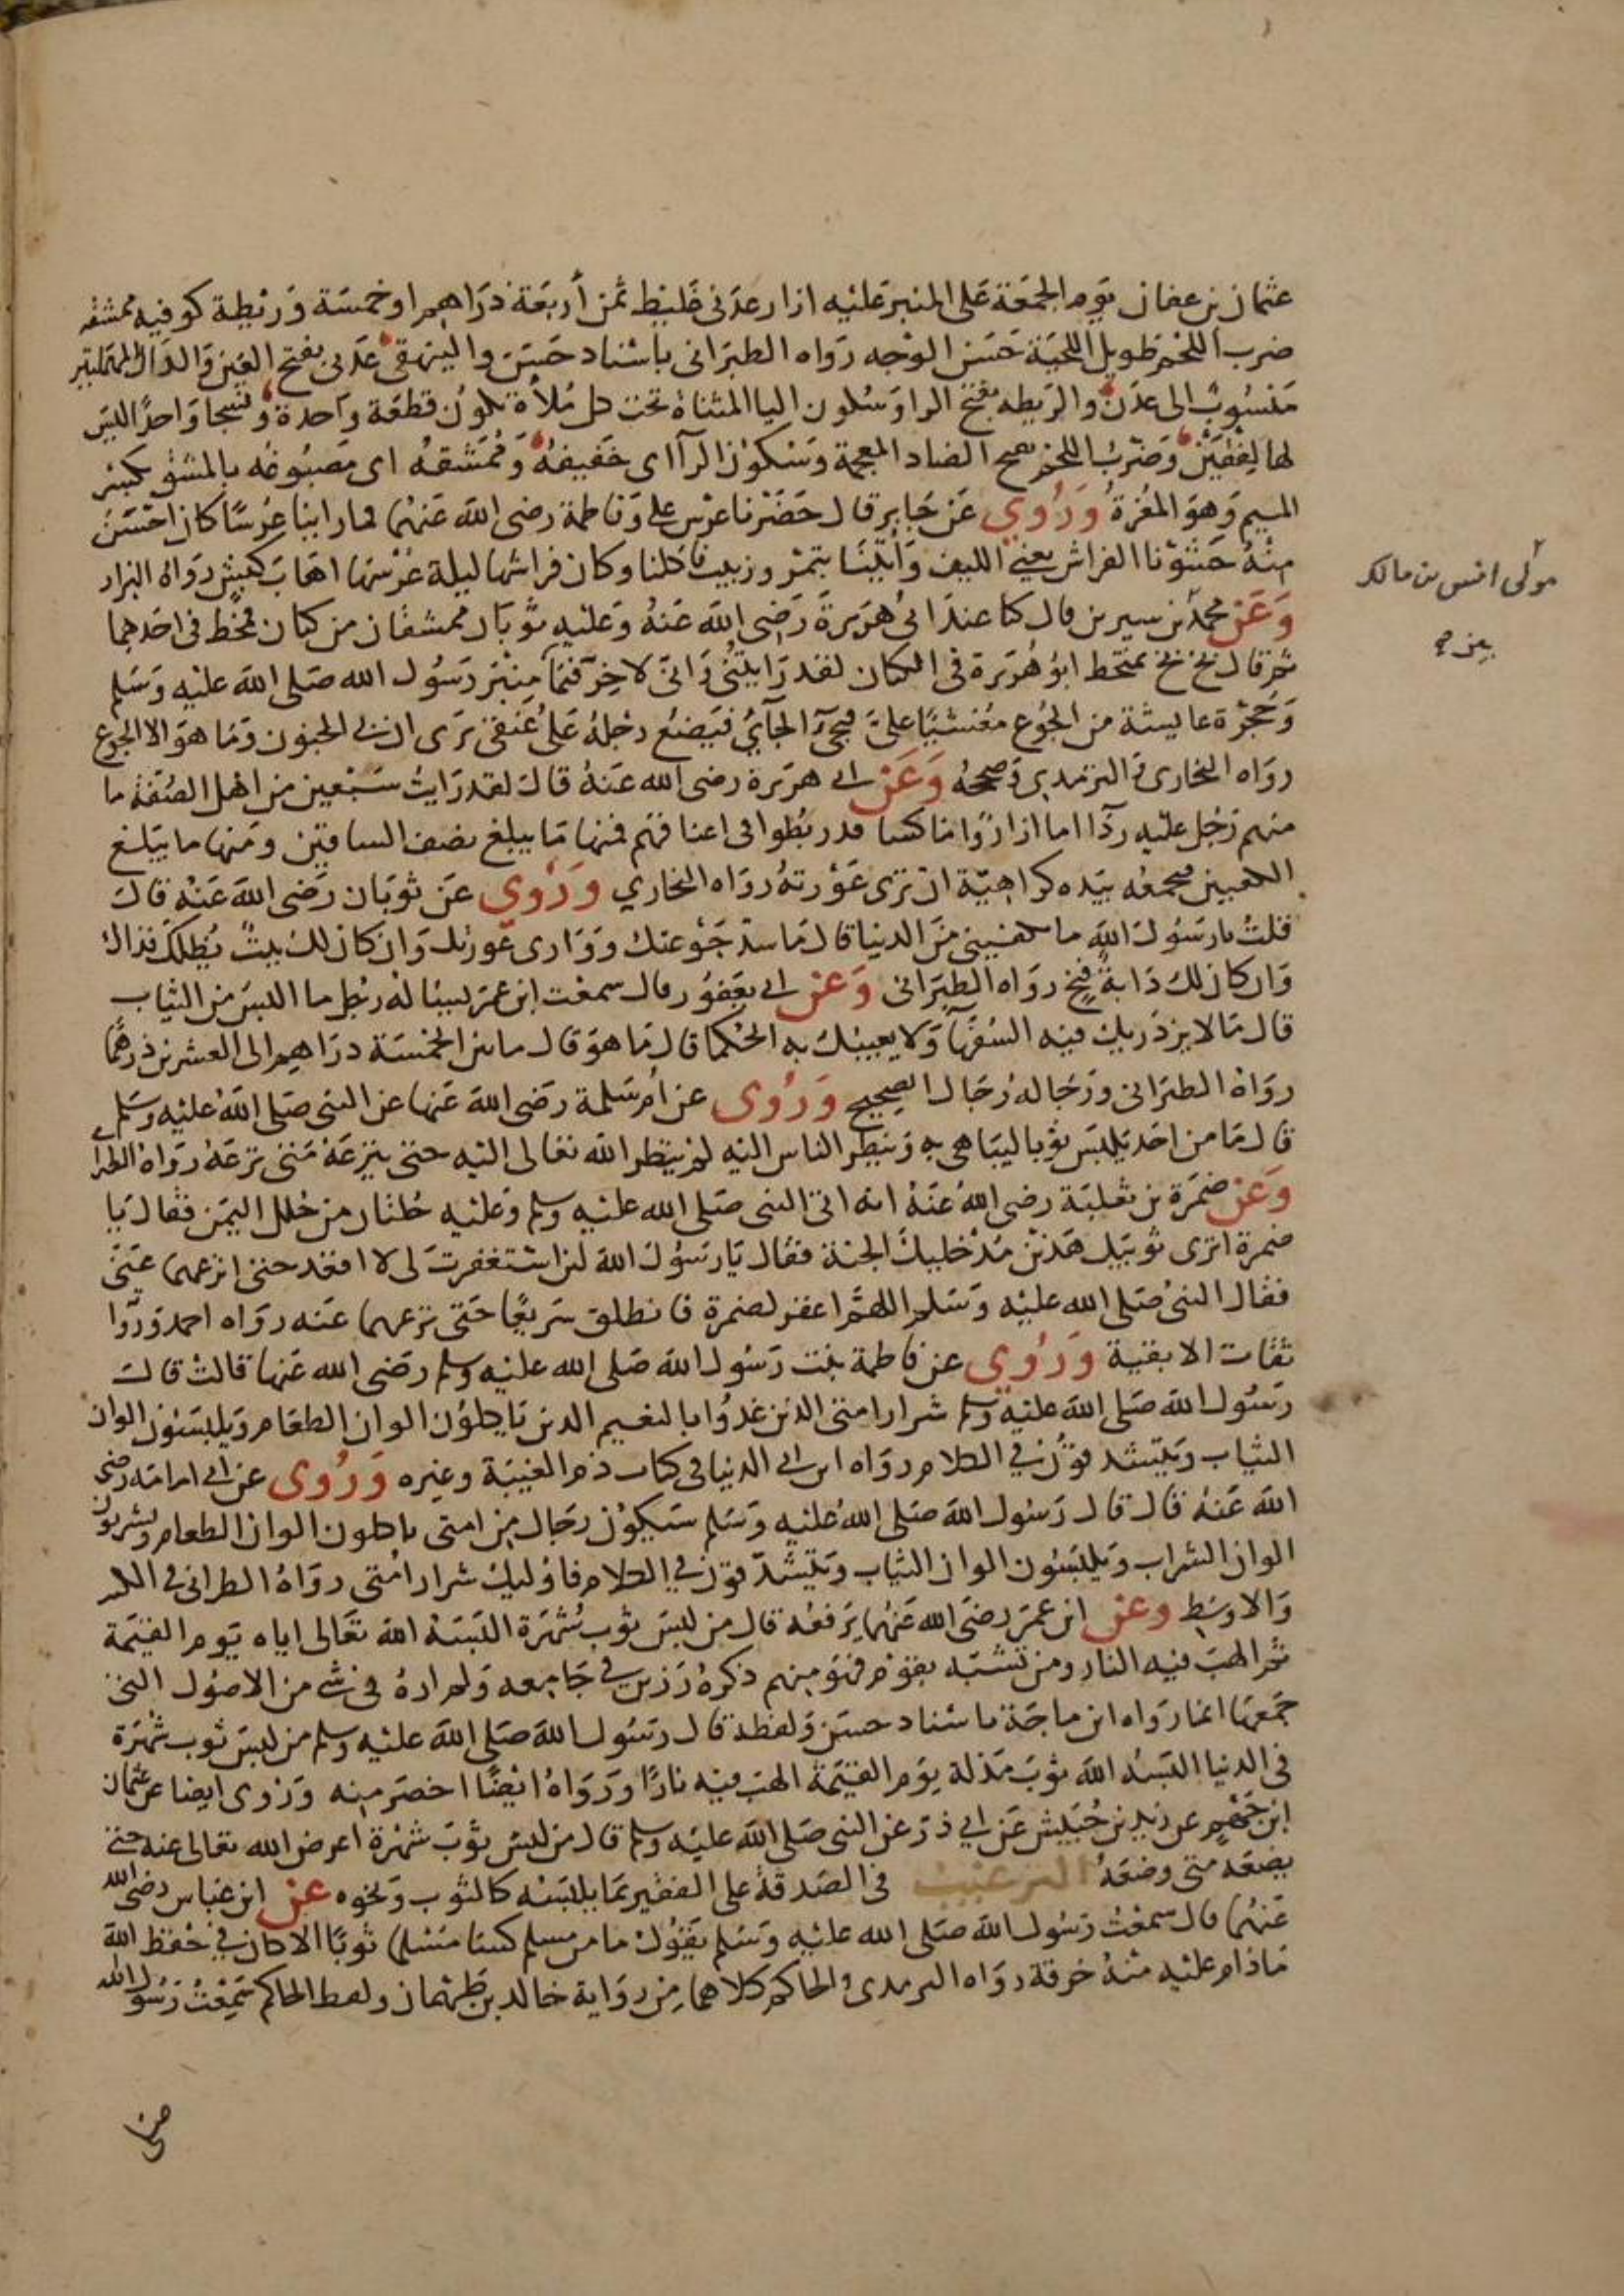 عثمان بن عفان يوم الجمعة على المنبر عليه ازار عدنى غليظ ثمن أربعة دراهم او خمسة وريطة كوفيه ممشقه
ضرب اللحم طويل اللحية حسن الوجه رواه الطبرانى باسناد حسن والبيهقى عدنى بفتح العين والدال المهملتين
منسوب الى عدن والريطه بفتح الرا وسكون اليا المثناة تحت كل ملأة تكون قطعة واحدة ونسجا واحدًا ليس
لها لفقين وضرب اللحم بفتح الضاد المعجمة وسكون الرآ اى خفيفه وممشقه اى مصبوغه بالمشق بكسر
الميم وهو المغرة وروي عن جابر قال حضرنا عرس على وفاطمة رضى الله عنهما فما راينا عرسًا كان احسن
منه حشونا الفراش يعني الليف وأتينا بتمر وزبيب فاكلنا وكان فراشها ليلة عرسها اهاب كبش رواه البزار
وعن محمد بن سيرين قال كنا عند ابى هريرة رضى الله عنه وعليه ثوبان ممشقان من كتان فمخط فى احدهما
ثم قال بخ بخ يمتخط ابو هريرة فى الكتان لقد رايتنى وانى لاخر فيما منبر رسول الله صلى الله عليه وسلم
وحجرة عايشة من الجوع مغشيًا على فيجئ الجآئ فيضع رجله على عنقى يرى ان بى الجنون وما هو الا الجوع
رواه البخارى والترمدى وصححه وعن ابى هريرة رضى الله عنه قال لقد رايت سبعين من اهل الصفة ما
منهم رجل عليه ردآ اما ازار واما كسا قد ربطوا فى اعناقهم فمنها ما يبلغ نصف الساقين ومنها ما يبلغ
الكعبين فيجمعه بيده كراهية ان ترى عورته رواه البخاري وروي عن ثوبان رضى الله عنه قال
قلت يا رسول الله ما يكفينى من الدنيا قال ما سد جوعتك ووارى عورتك وان كان لك بيتٌ يظلك فذاك
وان كان لك دابةٌ فبخ رواه الطبرانى وعن ابى يعفور قال سمعت ابن عمر يسئاله رجل ما البس من الثياب
قال مالا يزدريك فيه السفهآ ولا يعيبك به الحكما قال ما هو قال ما بين الخمسة دراهم الى العشرين درهمًا
رواه الطبرانى ورجاله رجال الصحيح وروى عن ام سلمة رضى الله عنها عن النبى صلى الله عليه وسلم
قال ما من احد يلبس ثوبا ليباهى به وينظر الناس اليه لم ينظر الله تعالى اليه حتى ينزعه متى نزعه رواه الطبرا
وعن ضمرة بن ثعلبة رضى الله عنه انه اتى النبى صلى الله عليه وسلم وعليه حلتان من حلل اليمن فقال يا
ضمرة اترى ثوبيك هذين مدخليك الجنة فقال يا رسول الله لئن استغفرت لى لا اقعد حتى انزعهما عنى
فقال النبى صلى الله عليه وسلم اللهم اغفر لضمرة فانطلق سريعًا حتى نزعهما عنه رواه احمد ورواته
ثقات الا بقية وروي عن فاطمة بنت رسول الله صلى الله عليه وسلم رضى الله عنها قالت قال
رسول الله صلى الله عليه وسلم شرار امتى الذين غذوا بالنعيم الدين ياكلون الوان الطعام ويلبسون الوان
الثياب ويتشدقون في الكلام رواه ابن ابى الدنيا فى كتاب ذم الغيبة وغيره وروى عن ابى امامه رضى
الله عنه قال قال رسول الله صلى الله عليه وسلم سيكون رجال من امتى ياكلون الوان الطعام ويشربون
الوان الشراب ويلبسون الوان الثياب ويتشدقون في الكلام فاوليك شرار امتى رواه الطبرانى فى الكبير
والاوسط وعن ابن عمر رضى الله عنهما يرفعه قال من لبس ثوب شهرة البسه الله تعالى اياه يوم القيمة
ثم الهب فيه النار ومن تشبه بقوم فهو منهم ذكره رزين في جامعه ولم اره فى شئ من الاصول التى
جمعها انما رواه ابن ماجة باسناد حسن ولفظه قال رسول الله صلى الله عليه وسلم من لبس ثوب شهرة
فى الدنيا البسه الله ثوب مذلة يوم القيمة الهب فيه نارًا ورواه ايضًا اخصر منه وروى ايضا عن عثمان
ابن جهم عن زيد بن حبيش عن ابي ذر عن النبى صلى الله عليه وسلم قال من لبس ثوب شهرة اعرض الله تعالى عنه حتى
يضعه متى وضعه الترغيب فى الصدقة على الفقير بما يلبسه كالثوب ونحوه عن ابن عباس رضى الله
عنهما قال سمعت رسول الله صلى الله عليه وسلم يقول ما من مسلم كسا مسلما ثوبًا الا كان في حفظ الله
ما دام عليه منه خرقة رواه الترمدى والحاكم كلاهما من رواية خالد بن طهمان ولفظ الحاكم سمعت رسول الله
مولى انس بن مالك